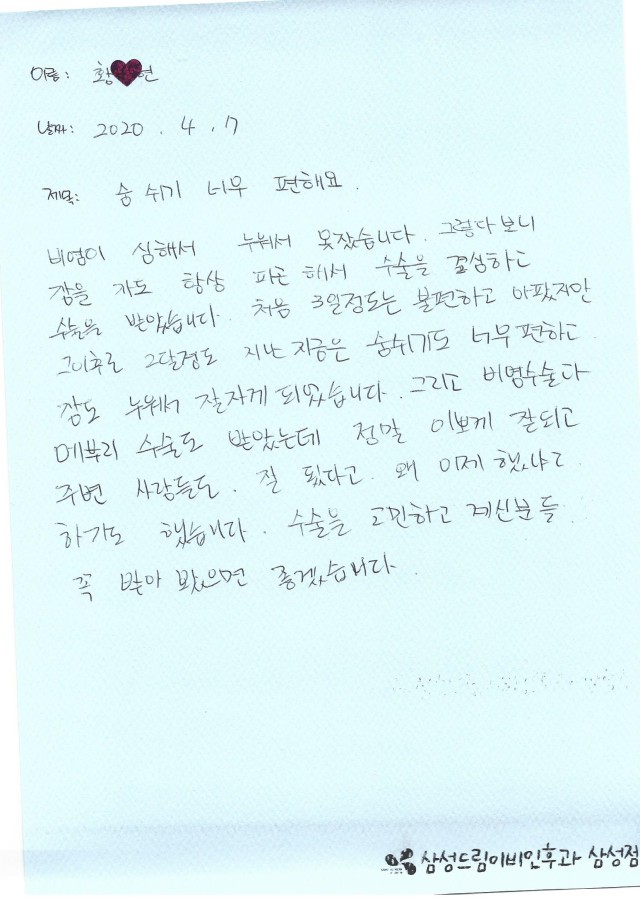 이름: 황♥현
날짜: 2020. 4. 17
제목: 숨 쉬기 너무 편해요.
비염이 심해서 누워서 못잤습니다. 그렇다보니
잠을 자도 항상 피곤해서 수술을 결심하고
수술을 받았습니다. 처음 3일정도는 불편하고 아팠지만
그이후로 2달정도 지난 지금은 숨쉬기도 너무 편하고
잠도 누워서 잘자게 되었습니다. 그리고 비염수술과
메부리 수술도 받았는데 정말 이쁘게 잘되고
주변 사람들도. 잘 됬다고. 왜 이제 했냐고
하기도 했습니다. 수술을 고민하고 계신분들
꼭 받아 봤으면 좋겠습니다.
삼성드림이비인후과 삼성점